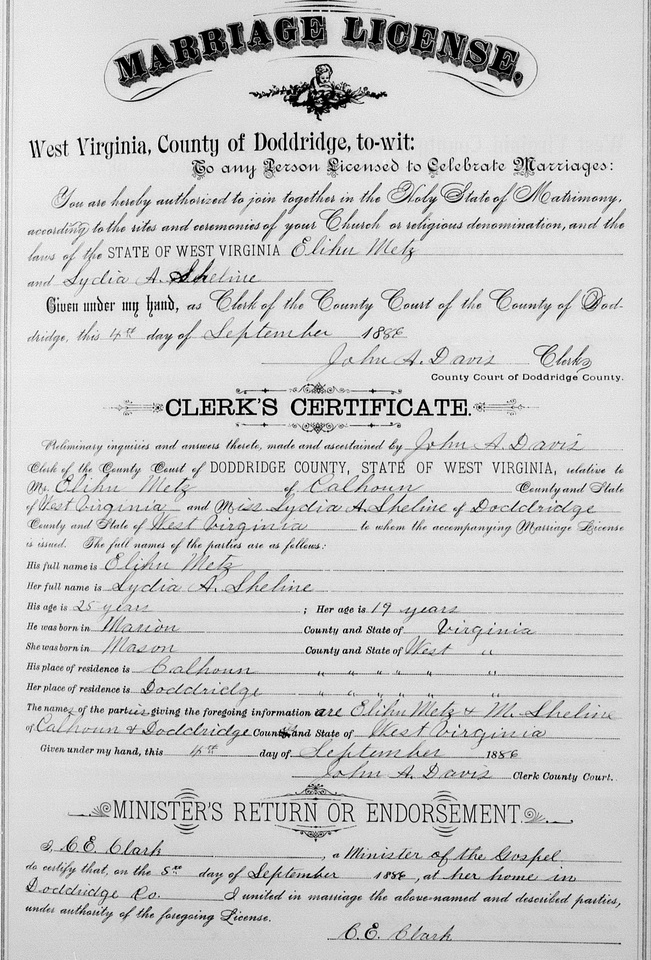 MARRIAGE LICENSE,
West Virginia, County of Doddridge, to-wit:
To any Person Licensed to Celebrate Marriages:
You are hereby authorized to join together in the Holy State of Matrimony,
according to the rites and ceremonies of your Church or religious denomination, and the
laws of the STATE OF WEST VIRGINIA Elihu Metz
and Lydia A. Sheline
Given under my hand, as Clerk of the County Court of the County of Dod-
dridge, this 4th day of September 1886
John A. Davis Clerk,
County Court of Doddridge County.
CLERK'S CERTIFICATE.
Preliminary inquiries and answers thereto, made and ascertained by John A Davis
Clerk of the County Court of DODDRIDGE COUNTY, STATE OF WEST VIRGINIA, relative to
Mr. Elihu Metz of Calhoun County and State
of West Virginia and Miss Lydia A Sheline of Doddridge
County and State of West Virginia to whom the accompanying Marriage License
is issued. The full names of the parties are as follows:
His full name is Elihu Metz
Her full name is Lydia A. Sheline
His age is 25 years ; Her age is 19 years
He was born in Marion County and State of Virginia
She was born in Mason County and State of West "
His place of residence is Calhoun " " " " " "
Her place of residence is Doddridge " " " " " "
The names of the parties giving the foregoing information are Elihu Metz & M. Sheline
of Calhoun & Doddridge County and State of West Virginia
Given under my hand, this 4th day of September 1886
John A. Davis Clerk County Court.
MINISTER'S RETURN OR ENDORSEMENT.
I, C.E. Clark, a Minister of the Gospel
do certify that, on the 5th day of September 1886, at her home in
Doddridge Co. I united in marriage the above-named and described parties,
under authority of the foregoing License.
C.E. Clark